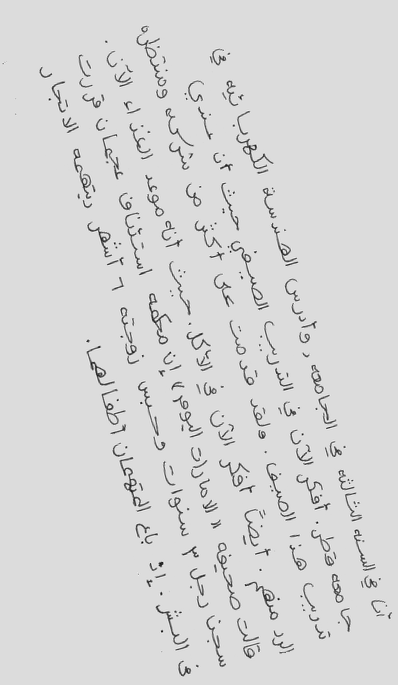 أنا في السنه الثالثه في الجامعه، وادرس الهندسة الكهربائيه في
جامعه قطر. افكر الآن في التدريب الصيفي حيث ان عندي
تدريب هذا الصيف. ولقد قدمت على اكثر من شركه ومنتظره
الرد منهم. ايضاً افكر الآن في الأكل. حيث انه موعد الغذاء الآن.
قالت صحيفه «الامارات اليوم» إن محكمه استئناف عجمان قررت
سجن رجل ٣ سنوات وحبس زوجته ٦ اشهر بتهمه الاتجار
في البشر. إذ باع المتهمان اطفالهما.